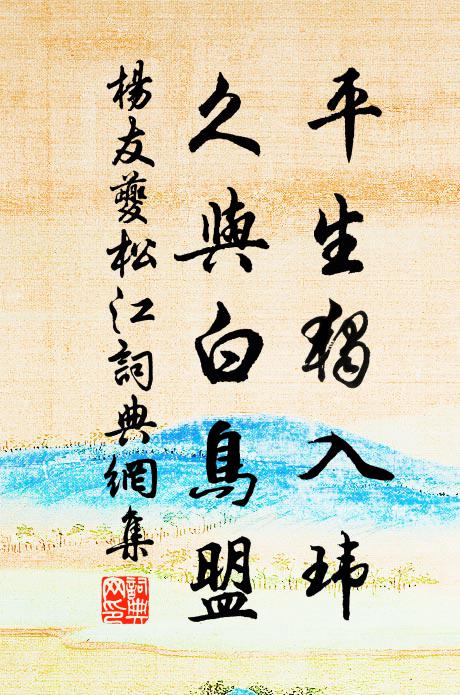 平生獨入瑋
久與白鳥盟
楊友夔松江詞典網集
詞典
网印